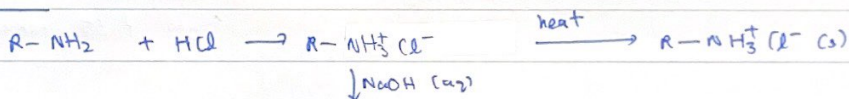 R – NH₂ + HCl ⟶ R – NH₃⁺ Cl⁻ heat⟶ R – NH₃⁺ Cl⁻ (s)
↓ NaOH (aq)